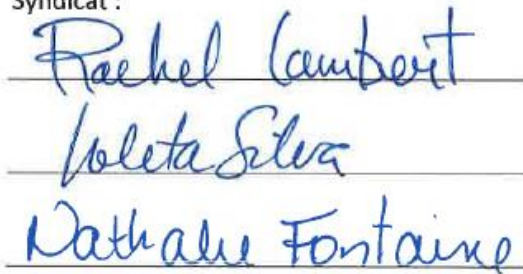 Syndicat :
Rachel Lambert
Loleta Silva
Nathalie Fontaine